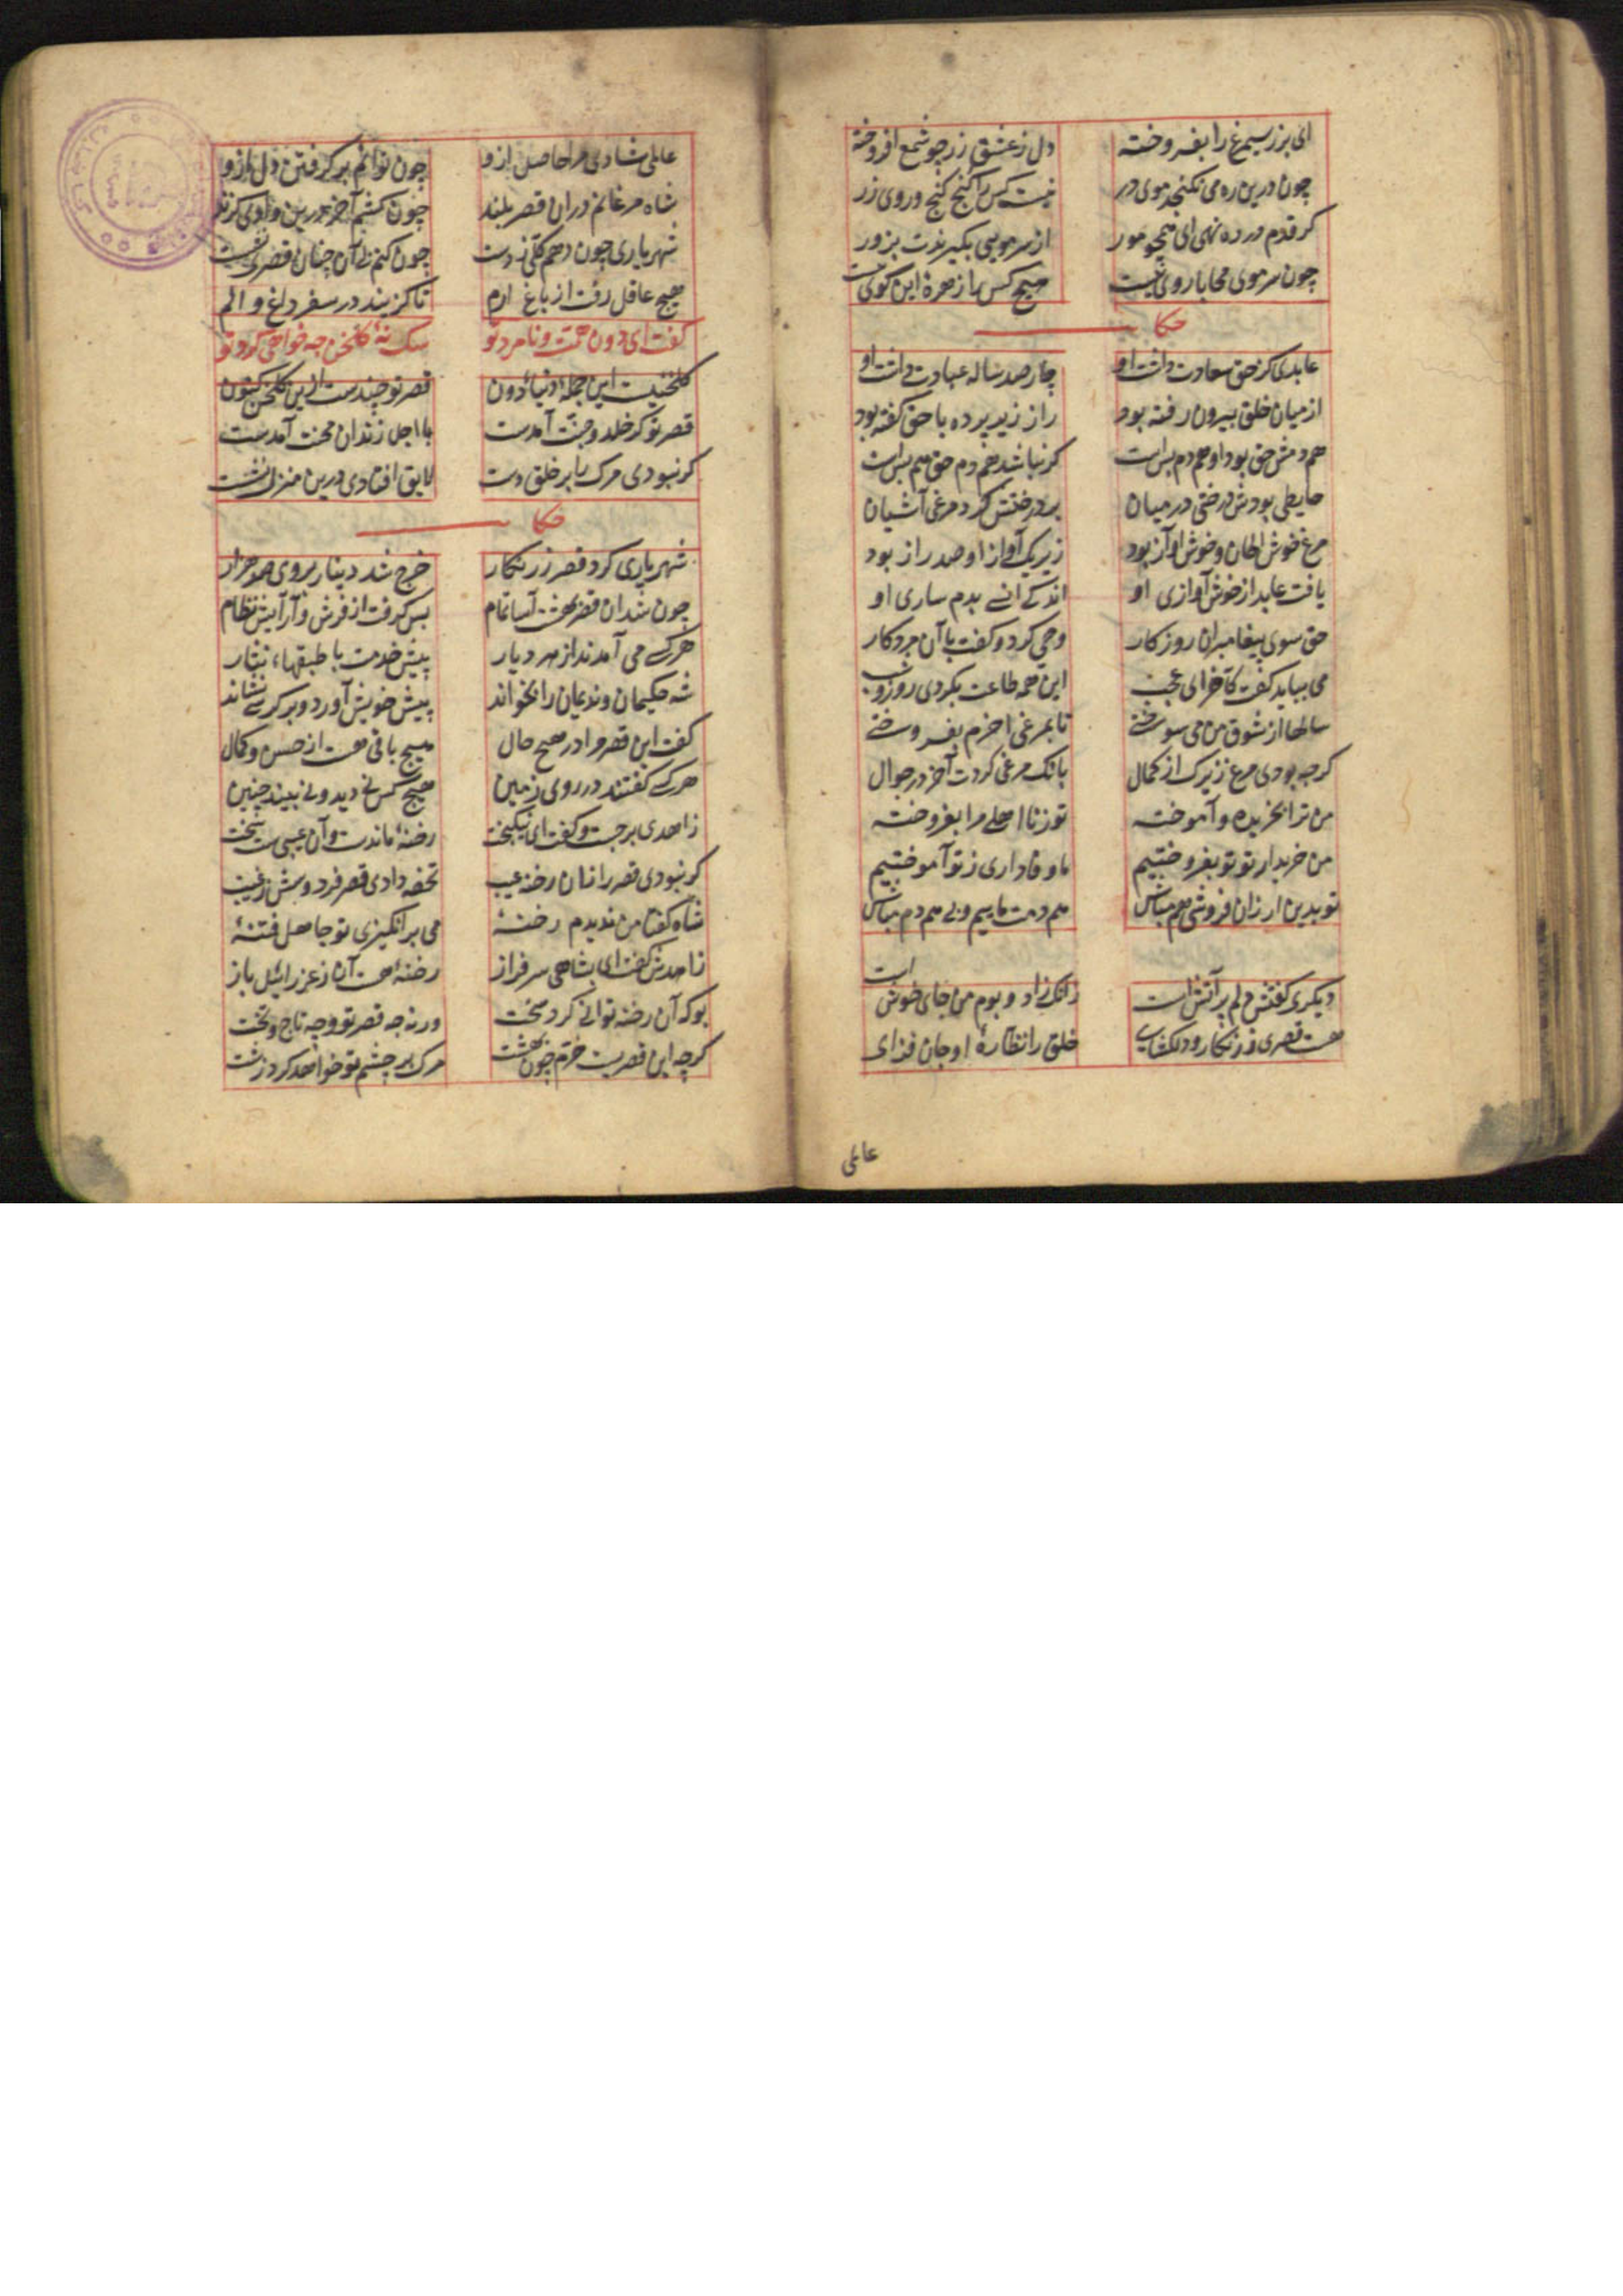 ای بزر سیمرغ را بفروخته دل ز عشق زر چو شمع افروخته
چون درین ره می نکنجد موی در نیست کس را کنج کنج و روی زر
کر قدم در ره نهی ای همچو مور از سر مویی بکیرندت بزور
چون سر موی محابا روی نیست هیچ کس را زهرهٔ این کوی نیست
حکا
عابدی کز حق سعادت داشت او چار صد ساله عبادت داشت او
از میان خلق بیرون رفته بود راز زیر پرده با حق کفته بود
همدمش حق بود او همدم بس است کر نباشد همدم حق هم بس است
حایطی بودش درختی در میان بر درختش کرد مرغی آشیان
مرغ خوش الحان و خوش آواز بود زیر یک آواز او صد راز بود
یافت عابد از خوش آوازی او اندکی انسی بدم سازی او
حق سوی پیغامبران روزکار وحی کرد و کفت با آن مرد کار
می بباید کفت کاخر ای عجب این همه طاعت بکردی روز و شب
سالها از شوق من می سوختی تا بمرغی اخرم بفروختی
کرچه بودی مرغ زیرک از کمال بانک مرغی کردت آخر در جوال
من ترا بخریده و آموخته تو ز نااهلی مرا بفروخته
من خریدار تو تو بفروختیم ما وفاداری ز تو آموختیم
تو بدین ارزان فروشی هم مباش همدمت ماییم و بی همدم مباش
دیکری کفتش دلم پر آتش است زانک زاد و بوم من جای خوش است
هست قصری زرنکار و دلکشای خلق را نظارهٔ او جان فزای
عالمی
عالمی شادی مرا حاصل ازو چون توانم بر کرفتن دل ازو
شاه مرغانم دران قصر بلند چون کشم آخر درین وادی کزند
شهریاری چون دهم کلی ز دست چون کنم بی آن چنان قصری نشست
هیچ عاقل رفت از باغ ارم تا کزیند در سفر داغ و الم
کفت ای دون همت و نامرد تو سک نهٔ کلخن چه خواهی کرد تو
کلخنیست این جمله دنیاء دون قصر تو چندست ازین کلخن کنون
قصر تو کر خلد و جنت آمدست با اجل زندان محنت آمدست
کر نبودی مرک را بر خلق دست لایق افتادی درین منزل نشست
حکا
شهریاری کرد قصر زرنکار خرج شد دینار بروی صد هزار
چون شد ان قصر بهشت آسا تمام بس کرفت از فرش و آرایش نظام
هر کسی می آمدند از هر دیار پیش خدمت با طبقهاء نثار
شه حکیمان و ندیمان را بخواند پیش خویش آورد و بر کرسی نشاند
کفت این قصر مرا در هیچ حال هیچ باقی هست از حسن و کمال
هر کسی کفتند در روی زمین هیچ کس نی دید و نی بیند چنین
زاهدی برجست و کفت ای نیکبخت رخنهٔ ماندست و آن عیبی ست سخت
کر نبودی قصر را زان رخنه عیب تحفه دادی قصر فردوسش ز غیب
شاه کفتا من ندیدم رخنهٔ می برانکیزی تو جاهل فتنهٔ
زاهدش کفت ای بشاهی سرفراز رخنهٔ هست آن ز عزرائیل باز
بوکه آن رخنه توانی کرد سخت ورنه چه قصر تو و چه تاج و تخت
کرچه این قصریست خرم چون بهشت مرک بر چشم تو خواهد کرد زشت